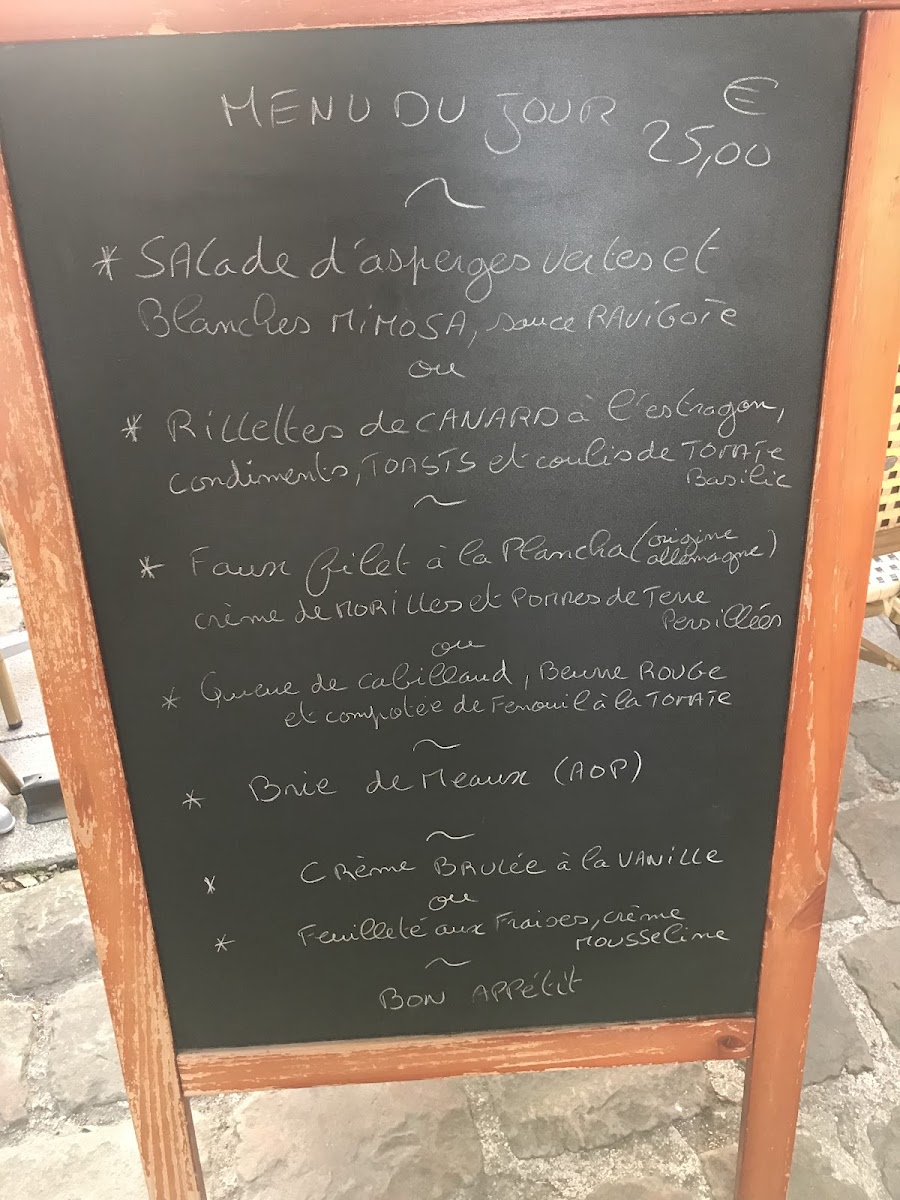 MENU DU JOUR €
25,00
~
* SALade d'asperges vertes et
Blanches MiMOSA, sauce RAViGOTe
ou
* Rillettes de CANARD à l'estragon,
condiments, TOASTS et coulis de TOMATe
Basilic
~
* Faux filet à la Plancha (origine
allemagne)
crème de MORILLes et POMMes de Terre
Persillées
ou
* Queue de cabillaud, Beurre ROUGE
et compotée de Fenouil à la TOMATe
~
* Brie de Meaux (AOP)
~
* CRème BRULÉE à la VANILLe
ou
* Feuilleté aux Fraises, crème
MOUSSeline
~
BON APPétit